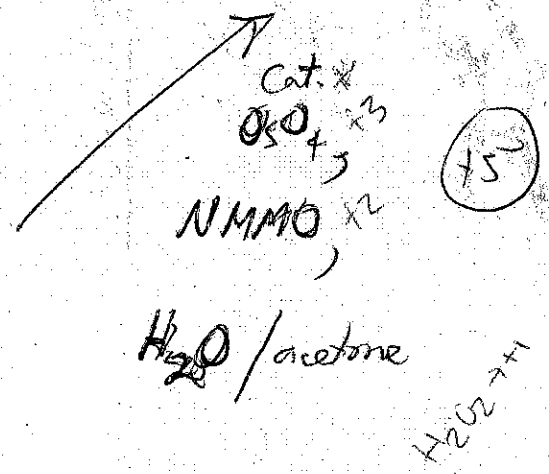 Cat. x
OsO4, x3
+5
NMMO, x2
H2O / acetone
H2O2 → +1